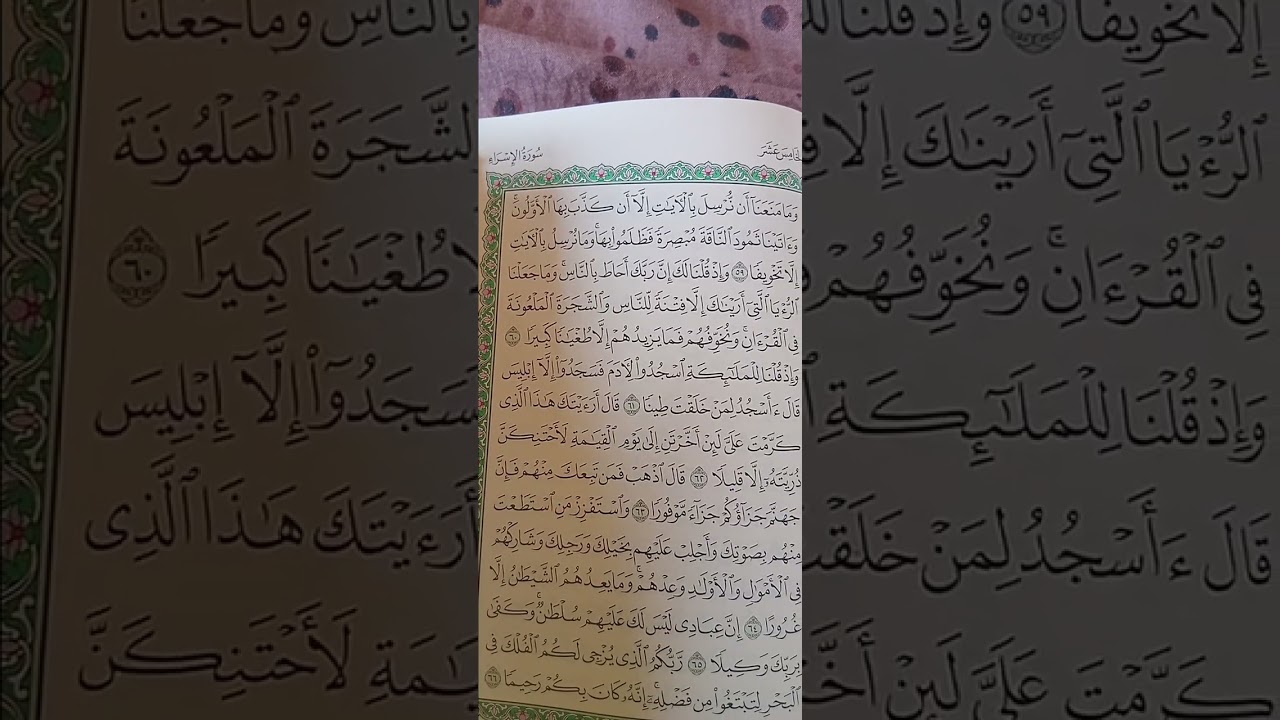 سُورَةُ الإِسْرَاءِ
وَمَا مَنَعَنَآ أَن نُّرْسِلَ بِٱلْأَيَـٰتِ إِلَّآ أَن كَذَّبَ بِهَا ٱلْأَوَّلُونَۚ
وَءَاتَيْنَا ثَمُودَ ٱلنَّاقَةَ مُبْصِرَةً فَظَلَمُوا۟ بِهَاۚ وَمَا نُرْسِلُ بِٱلْأَيَـٰتِ
إِلَّا تَخْوِيفًا ٥٩ وَإِذْ قُلْنَا لَكَ إِنَّ رَبَّكَ أَحَاطَ بِٱلنَّاسِۚ وَمَا جَعَلْنَا
ٱلرُّءْيَا ٱلَّتِىٓ أَرَيْنَـٰكَ إِلَّا فِتْنَةً لِّلنَّاسِ وَٱلشَّجَرَةَ ٱلْمَلْعُونَةَ
فِى ٱلْقُرْءَانِۚ وَنُخَوِّفُهُمْ فَمَا يَزِيدُهُمْ إِلَّا طُغْيَـٰنًا كَبِيرًا ٦٠
وَإِذْ قُلْنَا لِلْمَلَـٰٓئِكَةِ ٱسْجُدُوا۟ لِأَدَمَ فَسَجَدُوٓا۟ إِلَّآ إِبْلِيسَ
قَالَ ءَأَسْجُدُ لِمَنْ خَلَقْتَ طِينًا ٦١ قَالَ أَرَءَيْتَكَ هَـٰذَا ٱلَّذِى
كَرَّمْتَ عَلَىَّ لَئِنْ أَخَّرْتَنِ إِلَىٰ يَوْمِ ٱلْقِيَـٰمَةِ لَأَحْتَنِكَنَّ
ذُرِّيَّتَهُۥٓ إِلَّا قَلِيلًا ٦٢ قَالَ ٱذْهَبْ فَمَن تَبِعَكَ مِنْهُمْ فَإِنَّ
جَهَنَّمَ جَزَآؤُكُمْ جَزَآءً مَّوْفُورًا ٦٣ وَٱسْتَفْزِزْ مَنِ ٱسْتَطَعْتَ
مِنْهُم بِصَوْتِكَ وَأَجْلِبْ عَلَيْهِم بِخَيْلِكَ وَرَجِلِكَ وَشَارِكْهُمْ
فِى ٱلْأَمْوَٰلِ وَٱلْأَوْلَـٰدِ وَعِدْهُمْۚ وَمَا يَعِدُهُمُ ٱلشَّيْطَـٰنُ إِلَّا
غُرُورًا ٦٤ إِنَّ عِبَادِى لَيْسَ لَكَ عَلَيْهِمْ سُلْطَـٰنٌۚ وَكَفَىٰ
بِرَبِّكَ وَكِيلًا ٦٥ رَّبُّكُمُ ٱلَّذِى يُزْجِى لَكُمُ ٱلْفُلْكَ فِى
ٱلْبَحْرِ لِتَبْتَغُوا۟ مِن فَضْلِهِۦٓۚ إِنَّهُۥ كَانَ بِكُمْ رَحِيمًا ٦٦